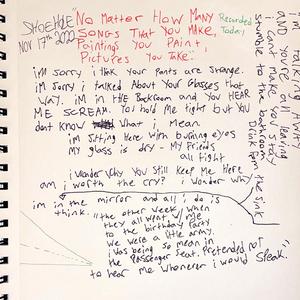 SHOEHOLE
NOV 17th 2020
"No Matter How Many
SONGS That You MAKE,
Paintings You Paint,
Pictures You Take."
Recorded
Today
im sorry i think your pants are strange.
im sorry i talked About Your Glasses that
way. im in the Backroom and you HEAR
ME SCREAM. You hold me tight but You
dont know what i mean
im sitting Here with burning eyes
My glass is dry - My friends
all tight
i wonder why you still keep Me Here
am i worth the cry? i wonder why
im in the mirror and all i do is
think. "the other week when
they all went w/ me
to the birthday party
we were a little army.
i was being so mean in
the passenger seat. Pretended not
to hear me whenever i would speak."
AND you're all leaving
i cant make you stay
stumble to the bathroom
drink from the sink